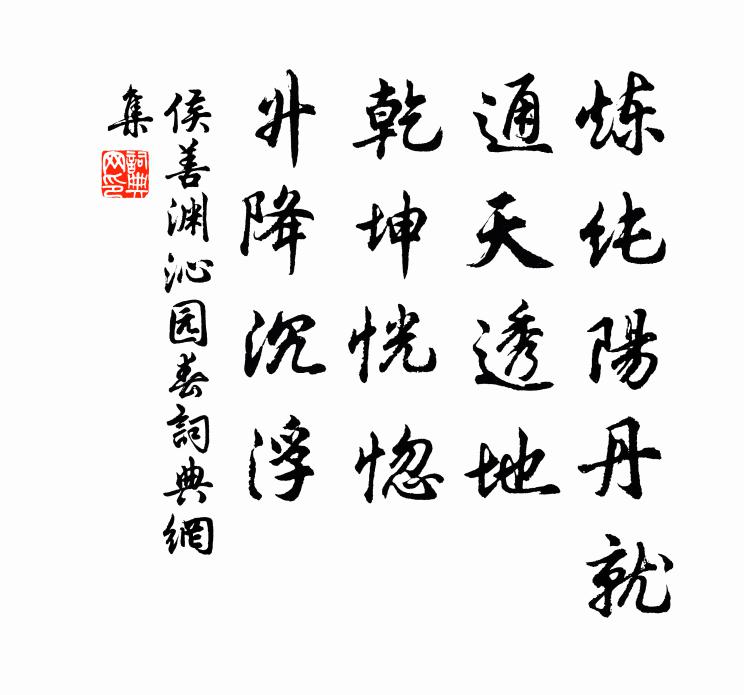 炼纯陽丹就
通天透地
乾坤恍惚
升降沉浮
侯善渊沁园春詞典網
集
詞典
网印